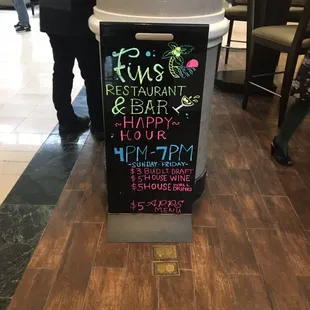 Fins
RESTAURANT
& BAR
~HAPPY~
HOUR
4PM-7PM
~SUNDAY-FRIDAY~
$3 BUD LT DRAFT
$5 HOUSE WINE
$5 HOUSE WELL DRINK
$5 APPS MENU